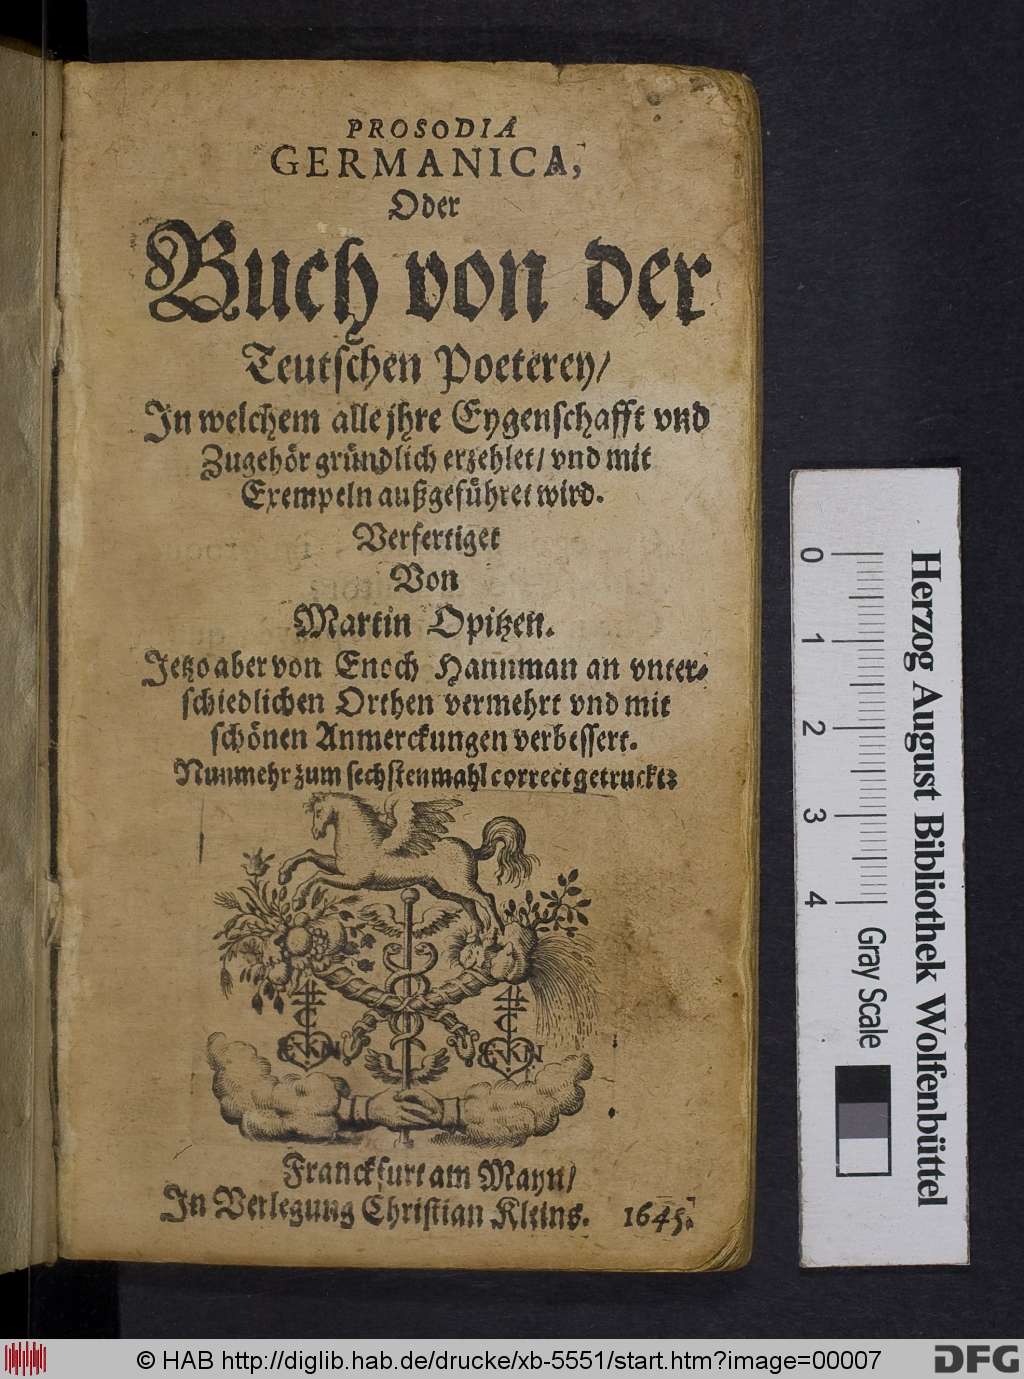 PROSODIA
GERMANICA,
Oder
Buch von der
Teutschen Poeterey/
In welchem alle jhre Eygenschafft vnd
Zugehör gründlich erzehlet/ vnd mit
Exempeln außgeführet wird.
Verfertiget
Von
Martin Opitzen.
Jetzo aber von Enoch Hannman an vnter-
schiedlichen Orthen vermehrt vnd mit
schönen Anmerckungen verbessert.
Nunmehr zum sechstenmahl correct getruckt:
Franckfurt am Mayn/
In Verlegung Christian Kleins. 1645.
0 1 2 3 4
Gray Scale
Herzog August Bibliothek Wolfenbüttel
© HAB http://diglib.hab.de/drucke/xb-5551/start.htm?image=00007
DFG